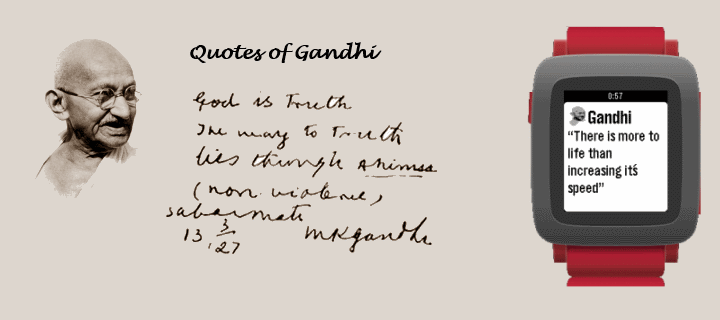 Quotes of Gandhi
God is Truth
The way to Truth
lies through ahimsa
(non violence)
sabarmati
13 3/27 MKgandhi
0:57
Gandhi
“There is more to
life than
increasing it's
speed”